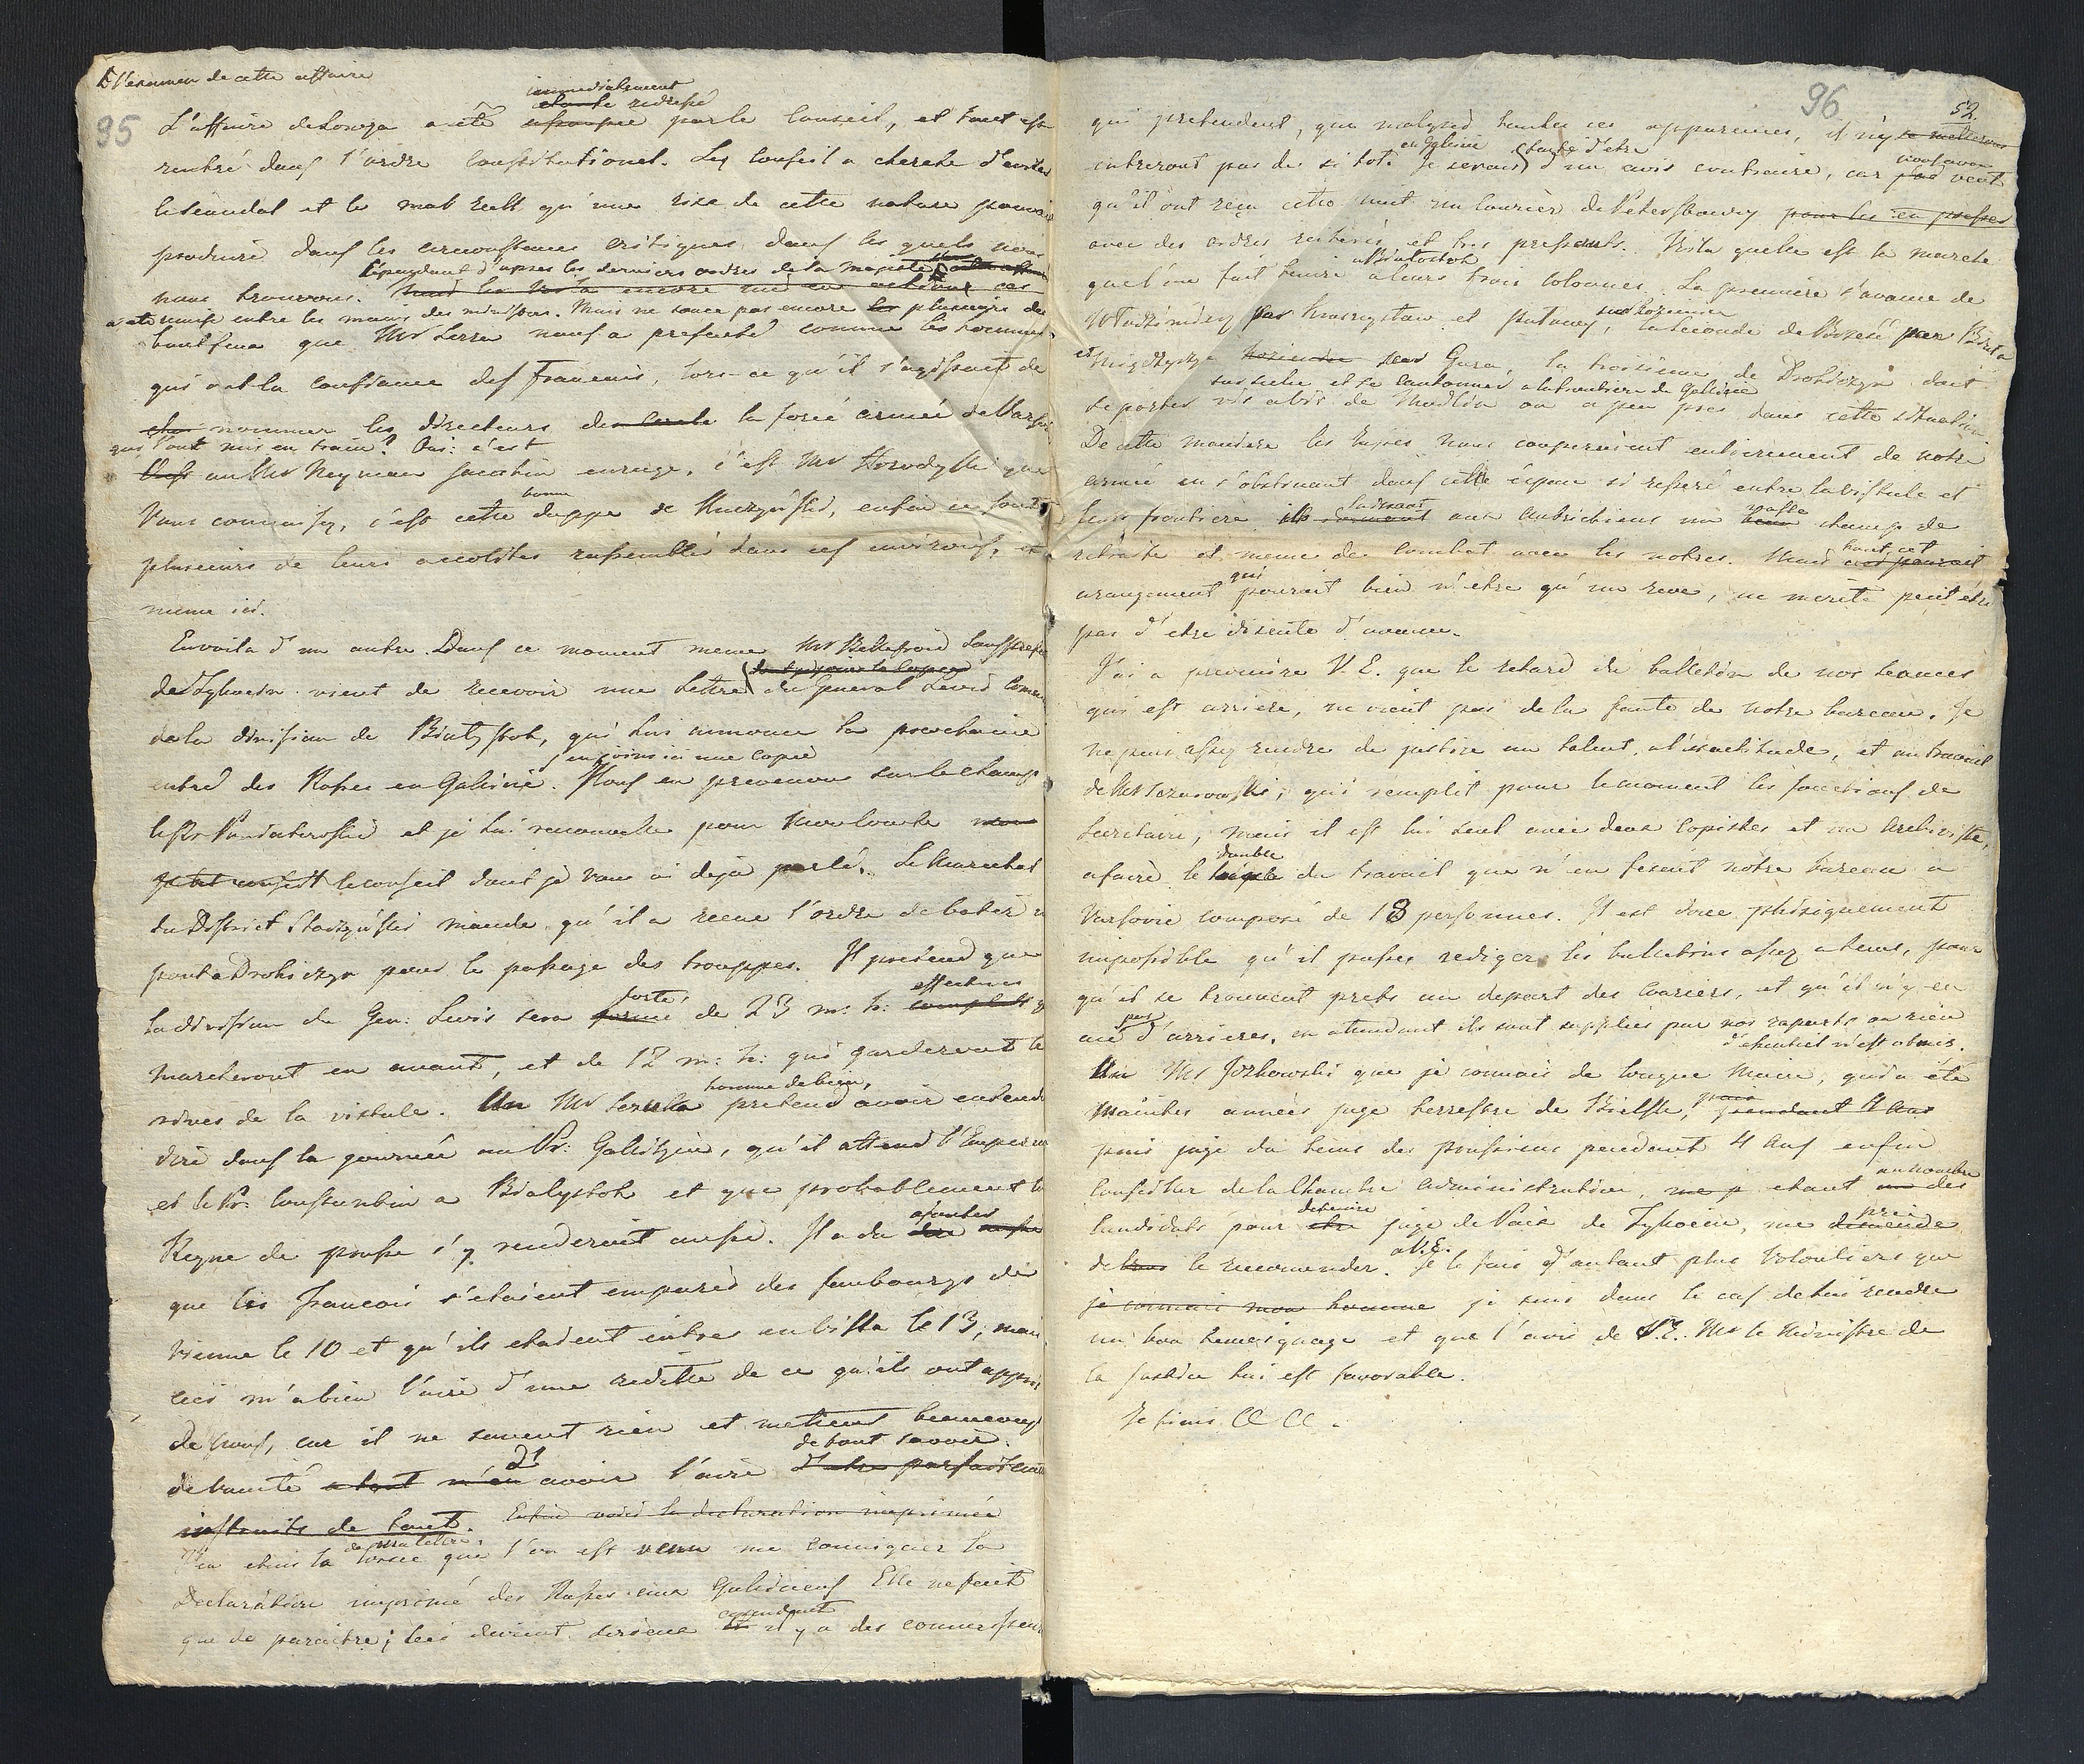 95
L'examen de cette affaire
immediatement
L'affaire de Lomza a été redressé par le Conseil, et tout est
rentré dans l'ordre Constitutionel. Le Conseil a cherché d'eviter
le scandal et le mal reell qu'une rixe de cette nature pouvait
produire dans les circonstances critiques dans les quels nous
Cependant d'apres les derniers ordres de Sa Majesté
nous trouvons.
a été remise entre les mains des ministres. Mais ne sonce pas encore plusieurs de
que Mr Serra nous a presenté comme les hommes
qui ont la confiance des Francais, lors-ce qu'il s'agissait de
nommer les directeurs de la force armée de Varsovie
qui l'ont mis en train? Oui: c'est
un Mr Neyman Jacobin enragé, c'est Mr Horodyski que
bonne
Vous connaissez, c'est cette duppe de , enfin ce sont
plusieurs de leurs accolites rassemblés dans ces environs, et
meme ici.
En voila d'un autre. Dans ce moment meme Mr Souspréfet
de Tykocin vient de recevoir une lettre du General Lewis Comman
de la division de Bialystok, qui lui annonce la prochaine
j'en joins ici une copie
entré des Russes en Galicie. Nous en prevenons sur le champ
le Pr Poniatowski et je lui renouvelle pour
le conseil dont je vous ai deja parlé. Le Marechal
du District Starzynski mande qu'il a recu l'ordre de batir un
pont a Drohiczyn pour le passage des trouppes. Il pretend que
forte effectives
la division du Gen: Lewis sera de 23 m: h:
marcheront en avant, et de 12 m: h: qui garderont les
homme de bien,
rives de la vistule. Mr pretend avoir entendu
dire dans la journée au Pr: Galitzin, qu'il attend l'Empereur
et le Pr: Constantin a Bialystok et que probablement le
ajouter
Regne de prusse s'y renderait aussi. Il a du
que les francois s'etaient emparés des faubourgs de
Vienne le 10 et qu'ils etaient entrés en ville le 13, mais
ceci m'a bien l'air d'une redite de ce qu'ils ont appris
de nous, car il ne savent rien et mettent beaucoup
de tout savoir.
de vanité a avoir l'air d'etre parfaitement
instruits de tout. Enfin voici la declaration imprimée
de ma lettre,
J'en etais la que l'on est venu me comuniquer la
Declaration imprimé des Russes aux Galiciens Elle ne fait
cependant
que de paraitre; ceci devient serieux il y a des connaisseurs
96
52.
qui pretendent, que malgred toutes ces apparences, il n'y
en Galicie tenté d'etre
entreront pas de si tot. Je serais d'un avis contraire, car
qu'il ont reçu cette nuit un Courier de Petersbourg pour les en presser
avec des ordres reiterés et tres pressants. Voila quelle est la marche
a Bialostok
que l'on fait tenir a leurs trois colonnes. La premiere s'avance de
Wlodzimierz par Krasnystaw et Pulawy, la seconde de Brzesc par Biala
et Miedzyrzyc Gura, la troisieme de Drohiczyn doit
sur siedlec et se cantonner a la frontiere de Galicie
se porter vis a vis de Modlin ou a peu pres dans cette situation
De cette maniere les Russes nous couperaient entierement de notre
armée en s'obstinant dans cette espace si resseré entre la vistule et
laissant vaste
leurs frontiere aux Autrichiens un champ de
retraite et meme de Combat avec les notres. Mais tout cet
qui
arangement pourait bien n'etre qu'un reve, ne merite peut etre
pas d'etre discuté d'avance.
J'ai a prevenire V. E. que le retard du bulletin de nos seances
qui est arriere, ne vient pas de la faute de notre bureau. Je
ne puis assez rendre de justice au talent, a l'exactitude, et au travail
de Mr , qui remplit pour le moment les fonctions de
Secretaire, mais il est lui seul avec deux Copistes et un Archiviste,
double
a faire le triple du travail que n'en fesait notre bureau a
Varsovie composé de 18 personnes. Il est donc phisiquement
impossible qu'il puisse rediger les bulletins assez a tems, pour
qu'il se trouvent prets au depart des Couriers, et qu'il n'y en
pas
aie d'arrieres, en attendant ils sont suppliés par nos raports ou rien
d'essentiel n'est obmis.
Un Mr Jozkowski que je connais de longue main, qui a été
maintes années juge terrestre de Bielsk, pendant 4 ans
puis juge du tems des prussiens pendant 4 Ans enfin
au nombre
Conseiller de la Chambre administrative, etant des
devenire prie
Candidats pour etre juge de Paix de Tykocin, me demande
a V.E.
de le recomender. Je le fais d'autant plus volontiers que
je connais mon homme je suis dans le cas de lui rendre
un bon temoignage et que l'avis de S.E. Mr le Ministre de
la Justice lui est favorable.
Je finis &c &c.